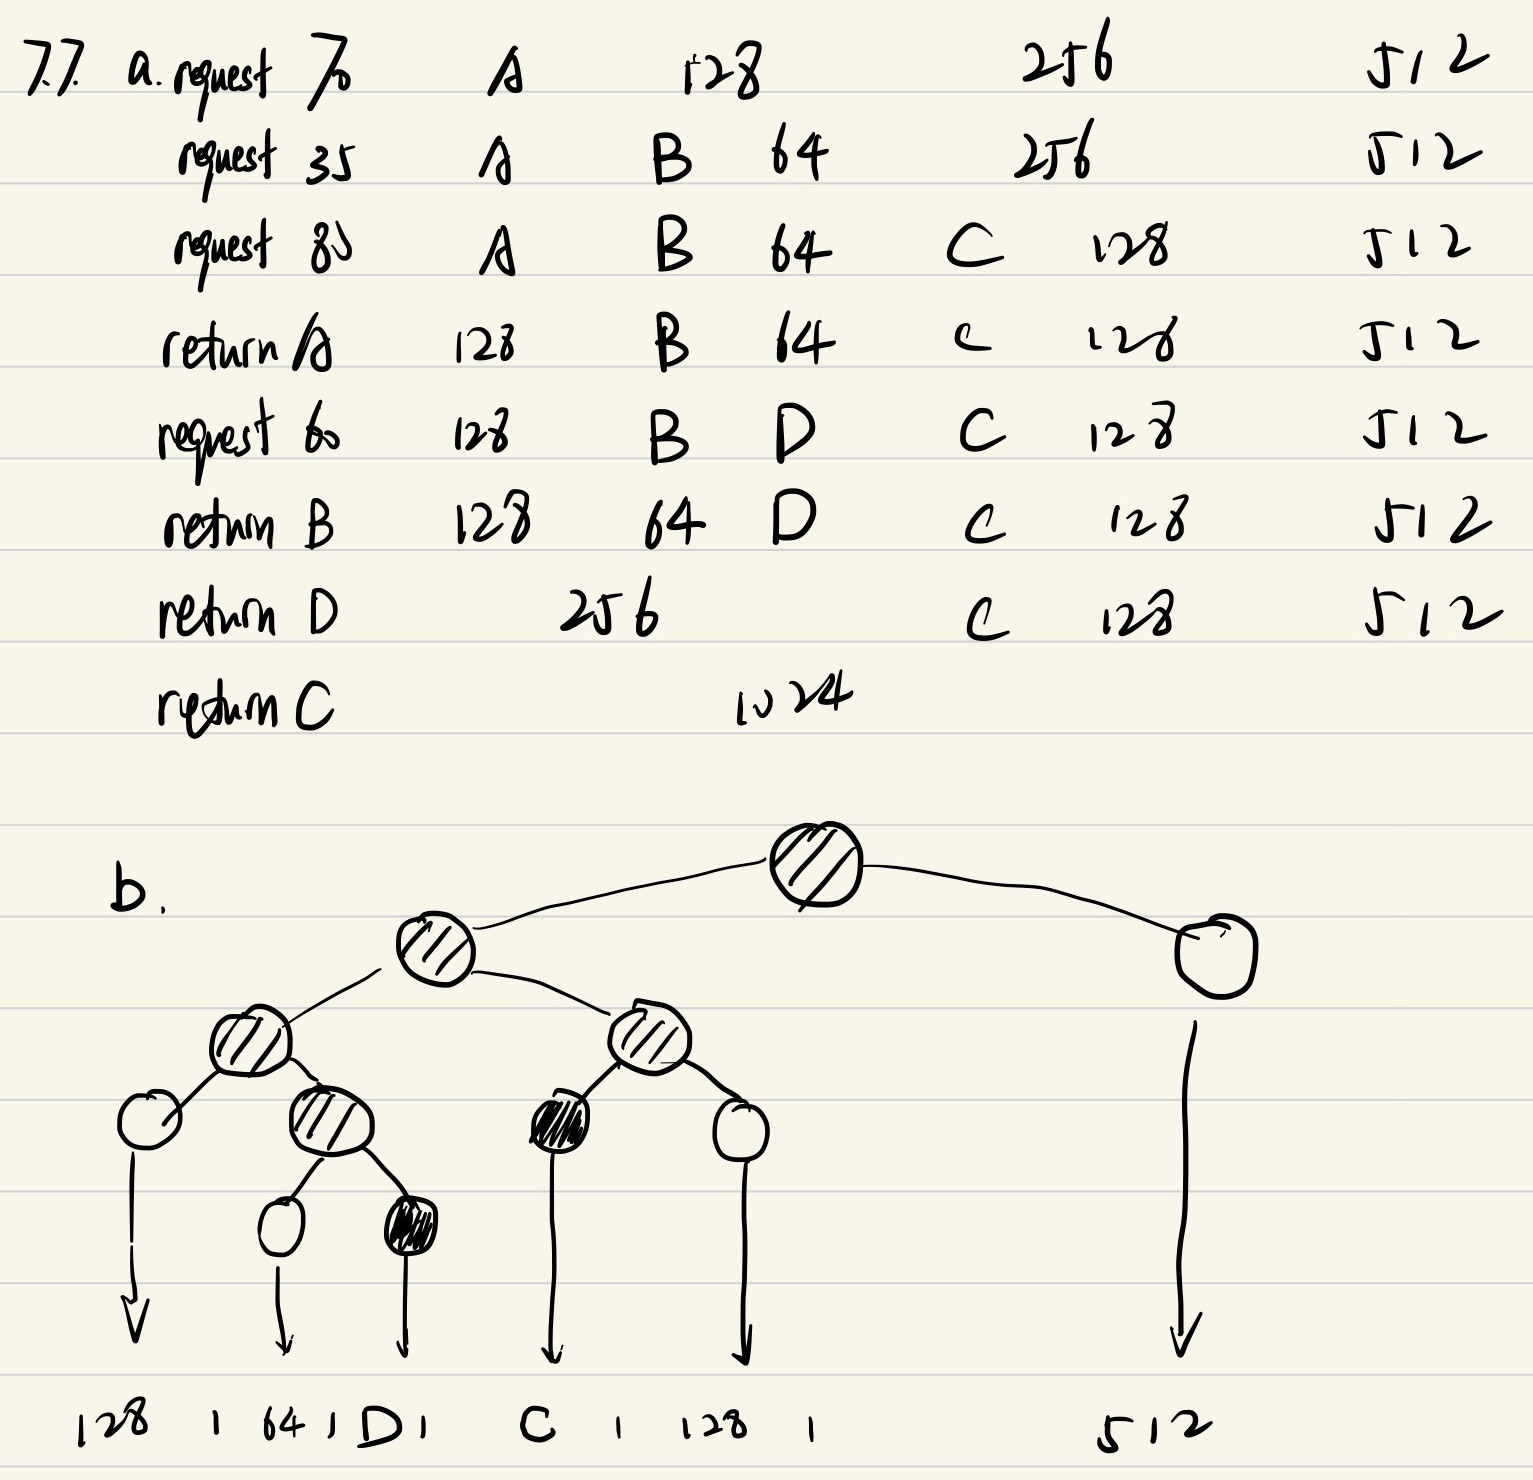 7.7. a. request 70 A 128 256 512
request 35 A B 64 256 512
request 80 A B 64 C 128 512
return A 128 B 64 C 128 512
request 60 128 B D C 128 512
return B 128 64 D C 128 512
return D 256 C 128 512
return C 1024
b.
128 | 64 | D | C | 128 | 512